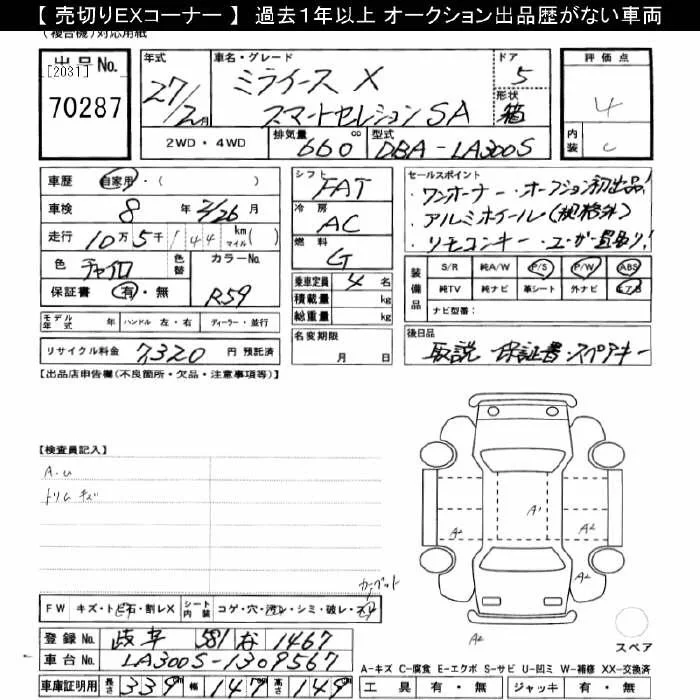 【 売切りEXコーナー 】 過去１年以上 オークション出品歴がない車両
(複合機)対応用紙
出品No.
[2031]
70287
年式
27/2月
車名・グレード
ミライース X
スマートセレクションSA
ドア
5
形状
箱
評価点
4
内装
C
2WD・4WD
排気量
660 cc
型式
DBA-LA300S
車歴 自家用・( )
車検 8 年 2/26 月
走行 10万5千144 km マイル( )
色 チャイロ
色替
カラーNo.
R59
保証書 有・無
モデル年式 年 ハンドル 左・右 ディーラー・並行
リサイクル料金 7,320 円 預託済
シフト
FAT
冷房
AC
燃料
G
乗車定員 4 名
積載量 kg
総重量 kg
名変期限
月 日
セールスポイント
・ワンオーナー・オークション初出品!
・アルミホイール(規格外)
・リモコンキー・ユーザー買取り!
装備品
S/R 純A/W P/S P/W ABS
純TV 純ナビ 革シート 外ナビ エアB
ナビ型番:
後日品
取説 保証書 スペアキー
【出品店申告欄(不良箇所・欠品・注意事項等)】
【検査員記入】
A.U
トリム キズ
カーペット
FW キズ・トビ石・割レX
シート内装 コゲ・穴・汚レ・シミ・破レ・スリ
A1
A2
A2
A2
A2
スペア
登録No. 岐阜 581 な 1467
車台No. LA300S-1309567
車庫証明用 長さ 339cm 幅 147cm 高さ 149cm
A-キズ C-腐食 E-エクボ S-サビ U-凹ミ W-補修 XX-交換済
工具 有・無 ジャッキ 有・無